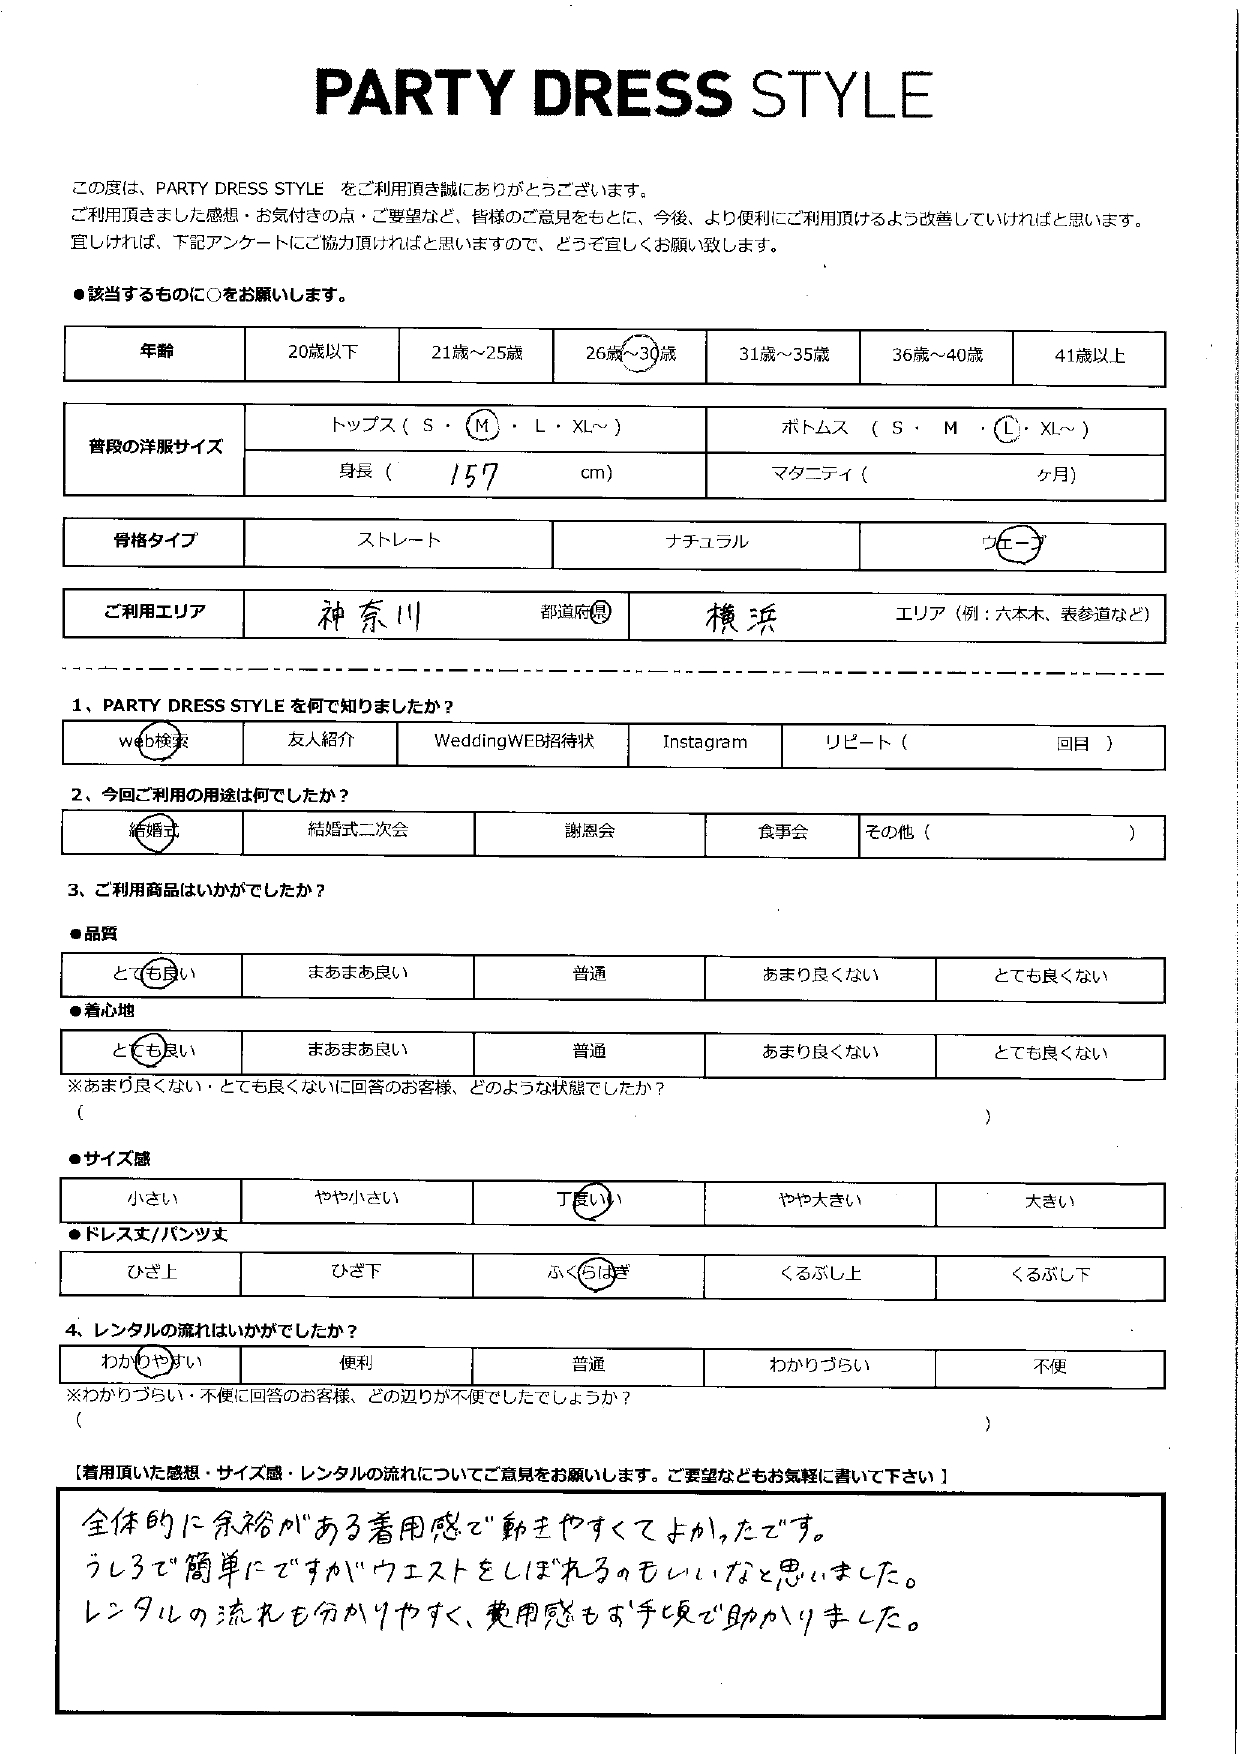 PARTY DRESS STYLE
この度は、PARTY DRESS STYLE をご利用頂き誠にありがとうございます。
ご利用頂きました感想・お気付きの点・ご要望など、皆様のご意見をもとに、今後、より便利にご利用頂けるよう改善していければと思います。
宜しければ、下記アンケートにご協力頂ければと思いますので、どうぞ宜しくお願い致します。
●該当するものに○をお願いします。
年齢 20歳以下 21歳～25歳 26歳～30歳 31歳～35歳 36歳～40歳 41歳以上
普段の洋服サイズ トップス ( S ・ M ・ L ・ XL～ ) ボトムス ( S ・ M ・ L ・ XL～ )
身長 ( 157 cm) マタニティ ( ヶ月)
骨格タイプ ストレート ナチュラル ウエーブ
ご利用エリア 神奈川 都道府県 横浜 エリア（例：六本木、表参道など）
1、PARTY DRESS STYLE を何で知りましたか？
web検索 友人紹介 WeddingWEB招待状 Instagram リピート ( 回目 )
2、今回ご利用の用途は何でしたか？
結婚式 結婚式二次会 謝恩会 食事会 その他 ( )
3、ご利用商品はいかがでしたか？
●品質
とても良い まあまあ良い 普通 あまり良くない とても良くない
●着心地
とても良い まあまあ良い 普通 あまり良くない とても良くない
※あまり良くない・とても良くないに回答のお客様、どのような状態でしたか？
( )
●サイズ感
小さい やや小さい 丁度いい やや大きい 大きい
●ドレス丈/パンツ丈
ひざ上 ひざ下 ふくらはぎ くるぶし上 くるぶし下
4、レンタルの流れはいかがでしたか？
わかりやすい 便利 普通 わかりづらい 不便
※わかりづらい・不便に回答のお客様、どの辺りが不便でしたでしょうか？
( )
【着用頂いた感想・サイズ感・レンタルの流れについてご意見をお願いします。ご要望などもお気軽に書いて下さい 】
全体的に余裕がある着用感で動きやすくてよかったです。
うしろで簡単にですがウエストをしぼれるのもいいなと思いました。
レンタルの流れも分かりやすく、費用感もお手頃で助かりました。